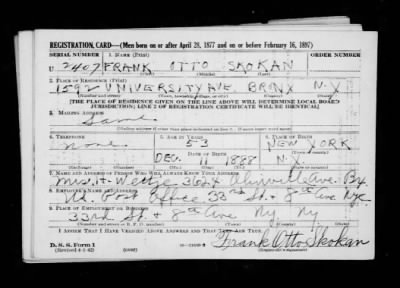 REGISTRATION CARD—(Men born on or after April 28, 1877 and on or before February 16, 1897)
SERIAL NUMBER 1. NAME (Print) ORDER NUMBER
U 2407 FRANK OTTO SKOKAN
(First) (Middle) (Last)
2. PLACE OF RESIDENCE (Print)
1592 UNIVERSITY AVE. BRONX N.Y.
(Number and street) (Town, township, village, or city) (County) (State)
[THE PLACE OF RESIDENCE GIVEN ON THE LINE ABOVE WILL DETERMINE LOCAL BOARD
JURISDICTION; LINE 2 OF REGISTRATION CERTIFICATE WILL BE IDENTICAL]
3. MAILING ADDRESS
Same
[Mailing address if other than place indicated on line 2. If same insert word same]
4. TELEPHONE 5. AGE IN YEARS 6. PLACE OF BIRTH
None 53 NEW YORK
DATE OF BIRTH
DEC. 11 1888 N.Y.
(Exchange) (Number) (Mo.) (Day) (Yr.) (State or country)
7. NAME AND ADDRESS OF PERSON WHO WILL ALWAYS KNOW YOUR ADDRESS
Mrs. H 3624 Ave. Bx.
8. EMPLOYER'S NAME AND ADDRESS
Post Office 33rd St. & 8th Ave NYC.
9. PLACE OF EMPLOYMENT OR BUSINESS
33rd St. & 8th Ave Ny. Ny
(Number and street or R. F. D. number) (Town) (County) (State)
I AFFIRM THAT I HAVE VERIFIED ABOVE ANSWERS AND THAT THEY ARE TRUE.
D. S. S. Form 1
(Revised 4-1-42) (over) Frank Otto Skokan